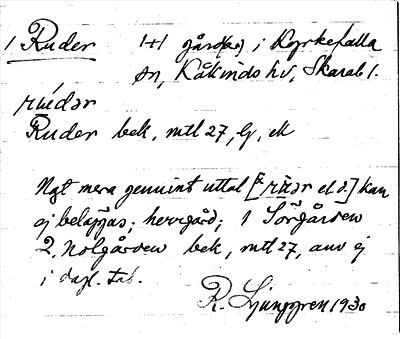 1 Ruder 1+1 gård(ar) i Kyrkefalla
sn, Kåkinds hd, Skarab l.
rúdər
Ruder bek, mtl 27, lj, ek
Ngt mera genuint uttal [rùər el d.] kan
ej beläggas; herrgård; 1 Sörgården
2. Nolgården bek, mtl 27, anv ej
i dagl. tal.
R. Ljunggren 1930